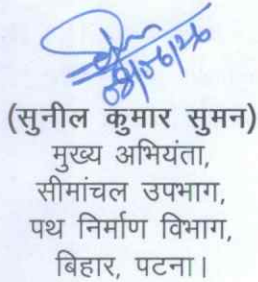 08/06/26
(सुनील कुमार सुमन)
मुख्य अभियंता,
सीमांचल उपभाग,
पथ निर्माण विभाग,
बिहार, पटना।